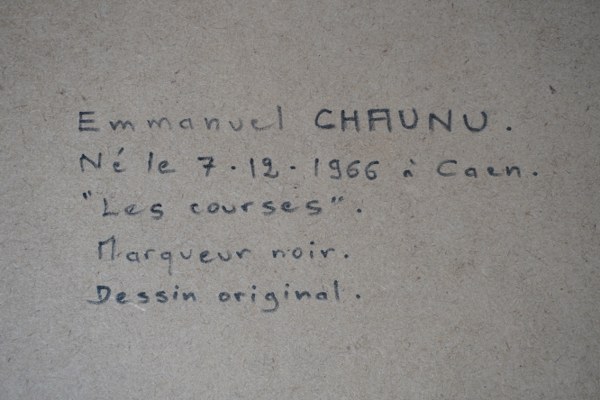 Emmanuel CHAUNU.
Né le 7.12.1966 à Caen.
"Les courses".
Marqueur noir.
Dessin original.